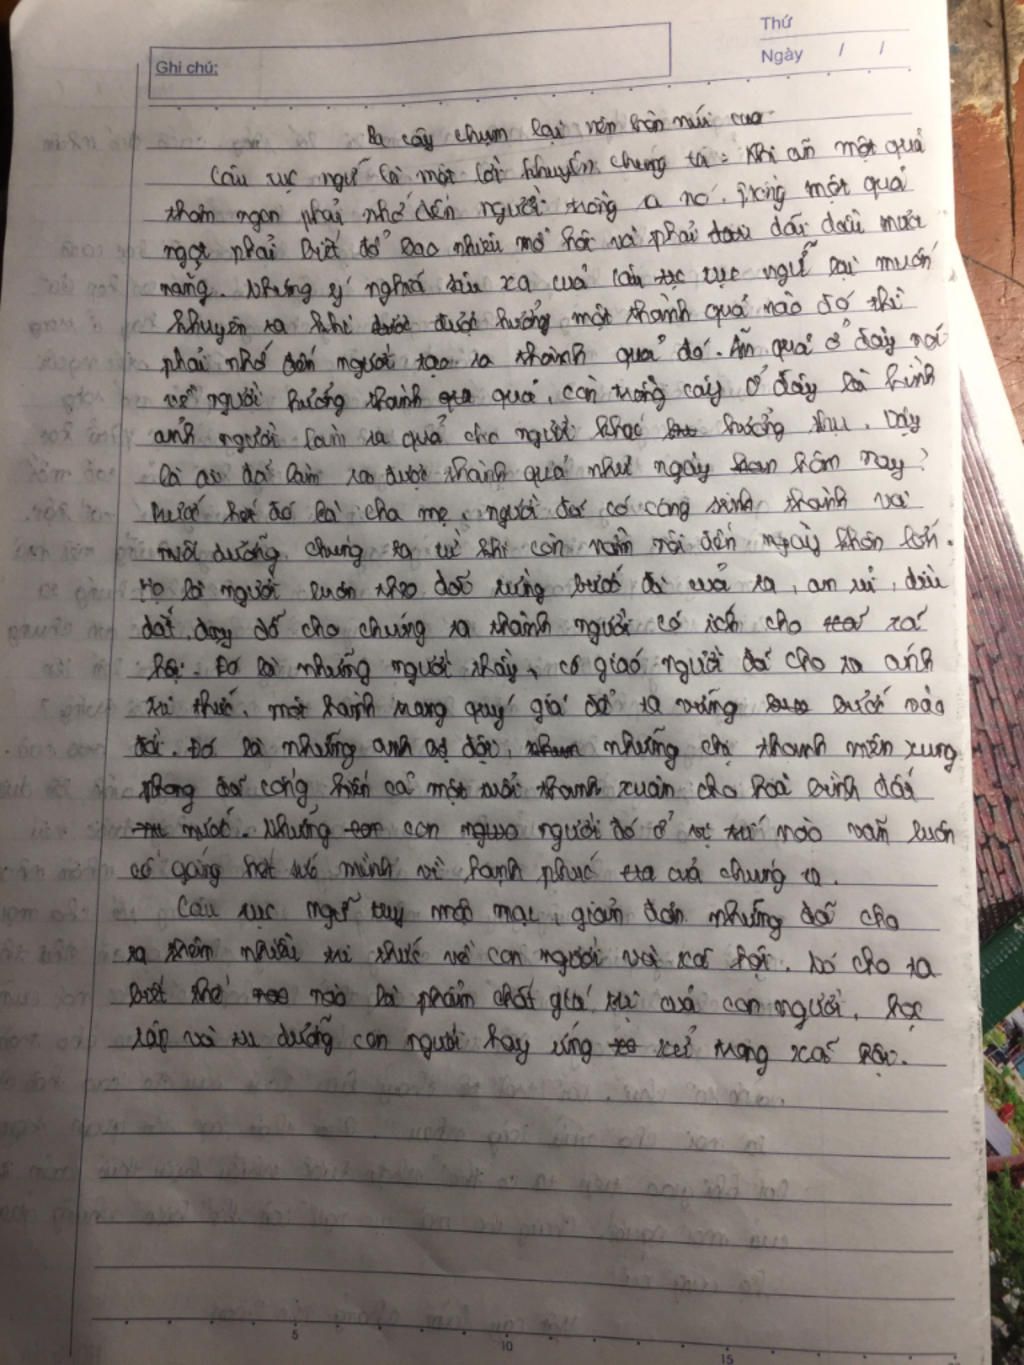 Thứ
Ngày / /
Ghi chú:
Ba cây chụm lại nên hòn núi cao
Câu tục ngữ là một lời khuyên chúng ta: Khi ăn một quả
thơm ngon phải nhớ đến người trồng ra nó. Trồng một quả
ngọt phải biết đổ bao nhiêu mồ hôi và phải dãi dầu mưa
nắng. Nhưng ý nghĩa sâu xa của câu tục ngữ lại muốn
khuyên ta khi được hưởng một thành quả nào đó thì
phải nhớ đến người tạo ra thành quả đó. Ăn quả ở đây nói
về người hưởng thành quả, còn trồng cây ở đây là hình
ảnh người làm ra quả cho người khác hưởng thụ. Vậy
là ai đã làm ra được thành quả như ngày hôm nay?
Trước hết đó là cha mẹ, người đã có công sinh thành và
nuôi dưỡng chúng ta từ khi còn nằm nôi đến ngày khôn lớn.
Họ là người luôn theo dõi từng bước đi của ta, an ủi, dìu
dắt, dạy dỗ cho chúng ta thành người có ích cho xã
hội. Đó là những người thầy, cô giáo người đã cho ta ánh
tri thức, một hành trang quý giá để ta vững bước vào
đời. Đó là những anh bộ đội, những chị thanh niên xung
phong đã cống hiến cả một tuổi thanh xuân cho hoà bình đất
nước. Những con người đó ở vị trí nào vẫn luôn
cố gắng hết sức mình vì hạnh phúc của chúng ta.
Câu tục ngữ tuy mộc mạc, giản đơn nhưng đã cho
ta thêm nhiều tri thức về con người và xã hội. Nó cho ta
biết thế nào là phẩm chất giá trị của con người, học
tập và tu dưỡng con người hay ứng xử trong xã hội.
5
10
15